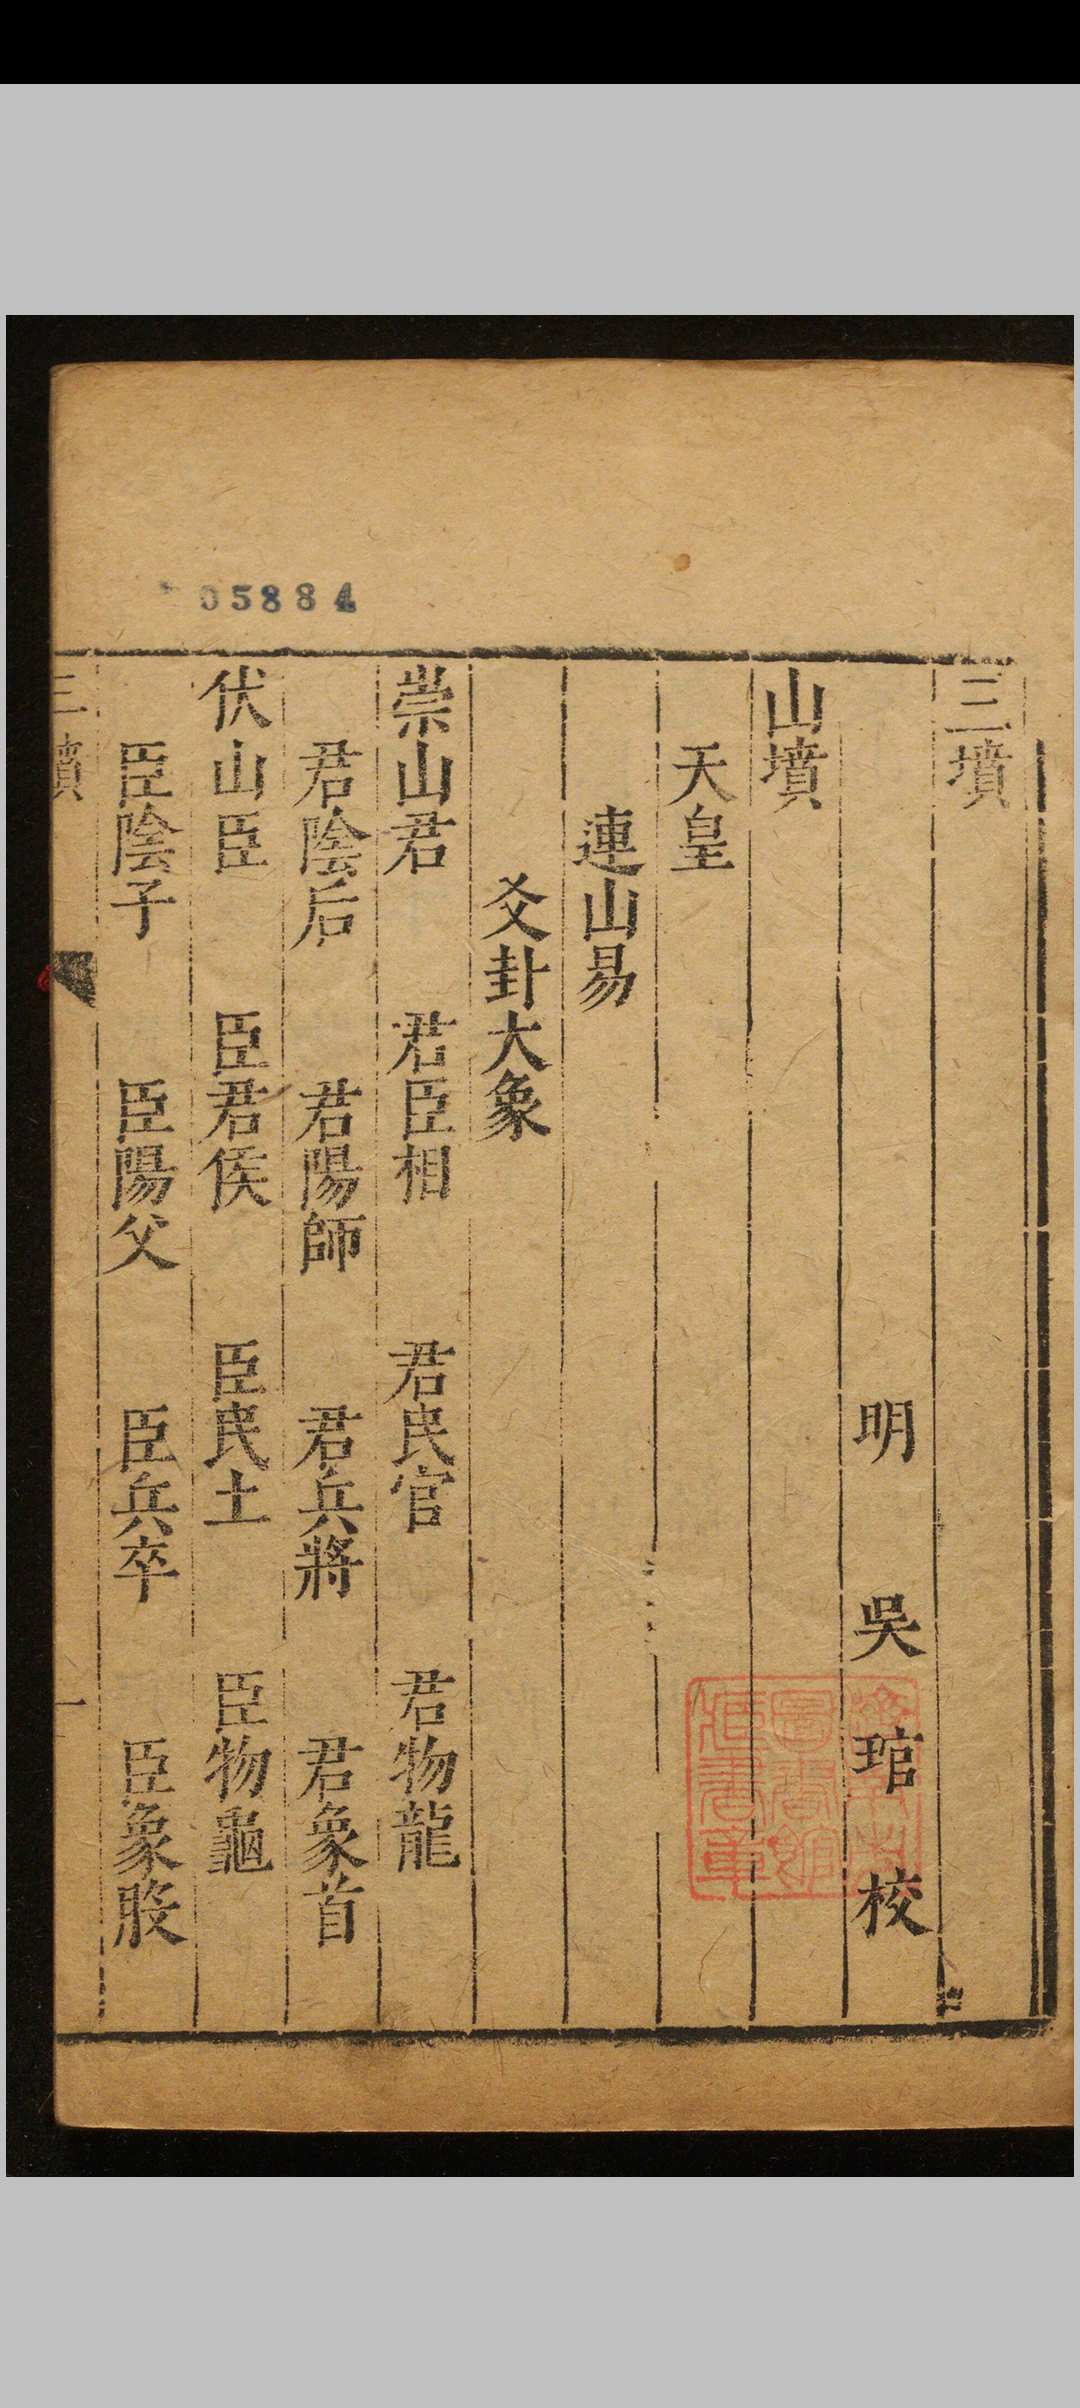 05884
三墳
明吳琯校
山墳
天皇
連山易
爻卦大象
崇山君 君臣相 君民官 君物龍
君陰后 君陽師 君兵將 君象首
伏山臣 臣君侯 臣民士 臣物龜
臣陰子 臣陽父 臣兵卒 臣象股
三墳 一
圖書館
藏書章